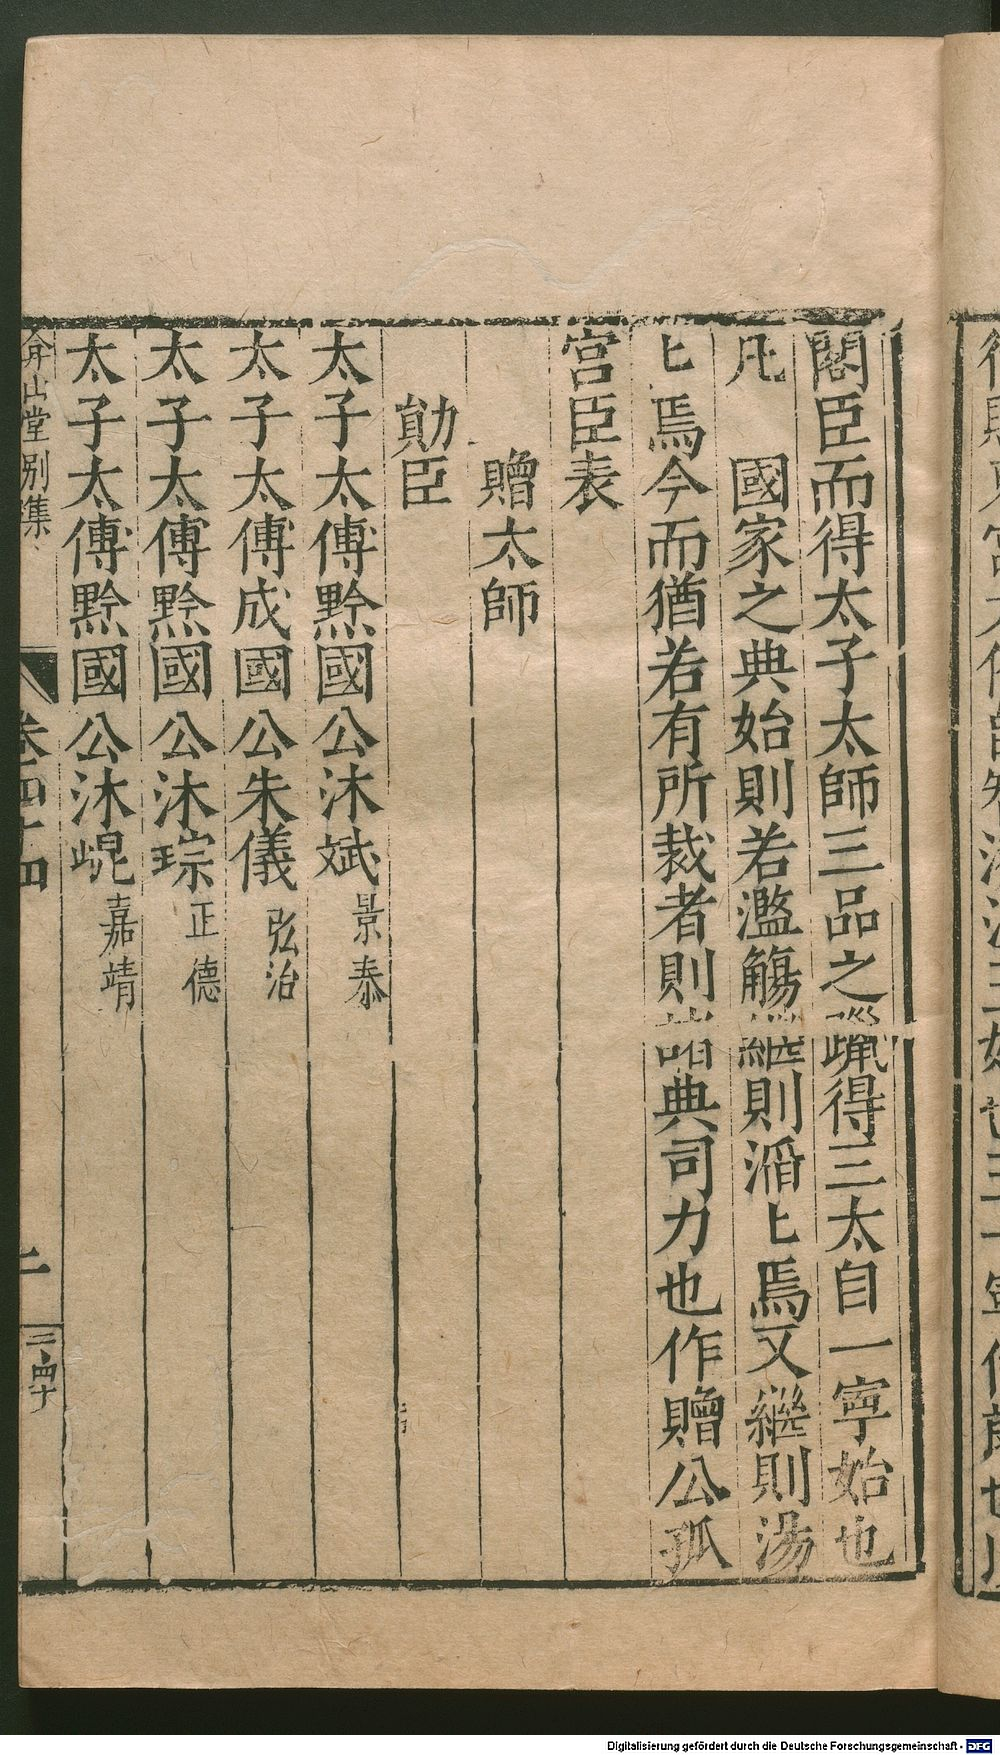 閣臣而得太子太師三品之躐得三太自一寧始也
凡 國家之典始則若濫觴繼則滔〻焉又繼則湯
〻焉今而猶若有所裁者則諸典司力也作贈公孤
宮臣表
贈太師
勛臣
太子太傅黔國公沐斌 景泰
太子太傅成國公朱儀 弘治
太子太傅黔國公沐琮 正德
太子太傅黔國公沐崐 嘉靖
弇山堂別集
卷四十四
二
三四十
Digitalisierung gefördert durch die Deutsche Forschungsgemeinschaft - DFG